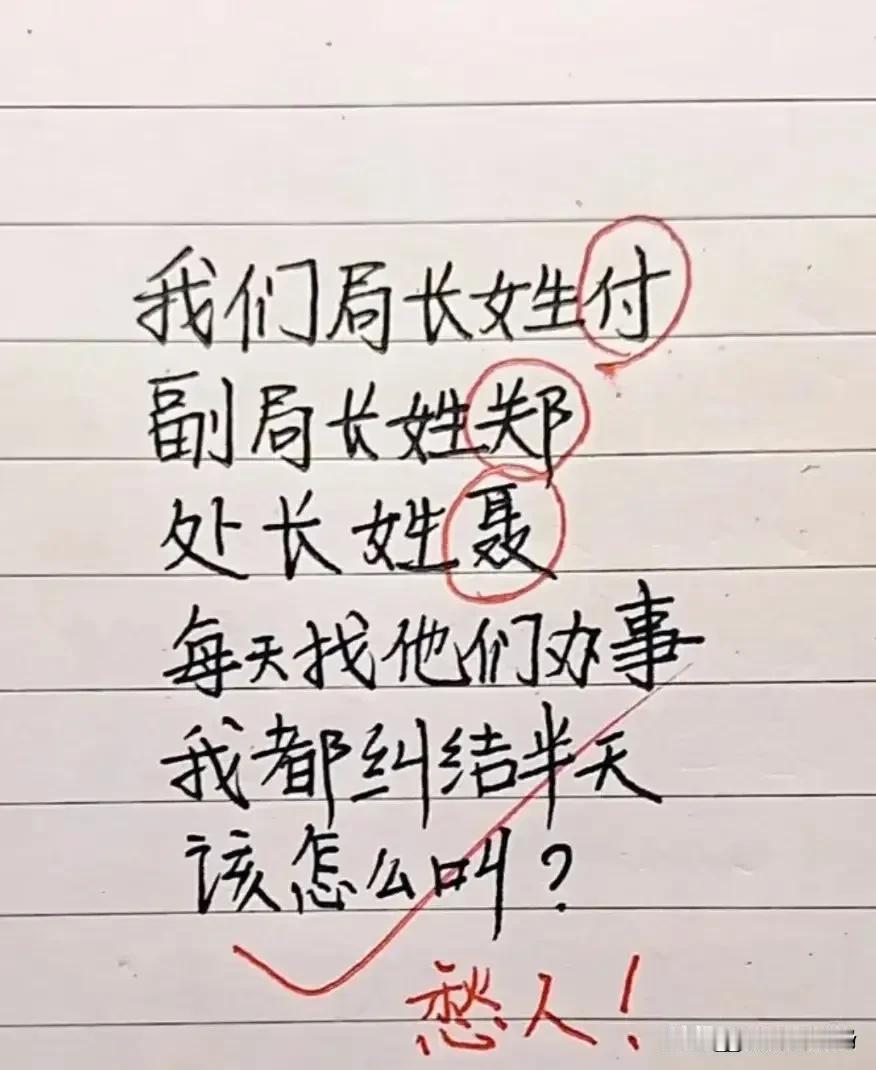 我们局长姓付
副局长姓郑
处长姓聂
每天找他们办事
我都纠结半天
该怎么叫？
愁人！